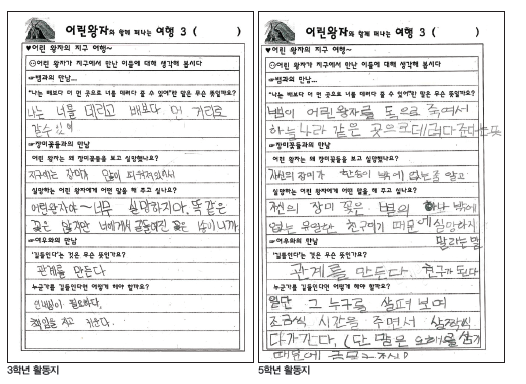 어린왕자와 함께 떠나는 여행 3 (        )
♥어린 왕자의 지구 여행~
☺어린 왕자가 지구에서 만난 이들에 대해 생각해 봅시다
☞뱀과의 만남...
"나는 배보다 더 먼 곳으로 너를 데려다 줄 수 있어"란 말은 무슨 뜻일까요?
나는 너를 데리고 배보다 먼 거리로
갈수 있어
☞장미꽃들과의 만남
어린 왕자는 왜 장미꽃들을 보고 실망했나요?
지구에는 장미가 많이 피어져있어서
실망하는 어린 왕자에게 어떤 말을 해 주고 싶나요?
어린왕자야~너무 실망하지마, 똑같은
꽃은 많지만 너에게서 길들여진 꽃은 하나니까
☞여우와의 만남
'길들인다'는 것은 무슨 뜻인가요?
관계를 만든다
누군가를 길들인다면 어떻게 해야 할까요?
인내심이 필요하다.
책임을 지고 키운다.
3학년 활동지
어린왕자와 함께 떠나는 여행 3 (        )
♥어린 왕자의 지구 여행~
☺어린 왕자가 지구에서 만난 이들에 대해 생각해 봅시다
☞뱀과의 만남...
"나는 배보다 더 먼 곳으로 너를 데려다 줄 수 있어"란 말은 무슨 뜻일까요?
뱀이 어린왕자를 독으로 죽여서
하늘나라 같은 곳으로데려다준다는뜻
☞장미꽃들과의 만남
어린 왕자는 왜 장미꽃들을 보고 실망했나요?
자신의 장미가 한송이 밖에 없는줄 알고
실망하는 어린 왕자에게 어떤 말을 해 주고 싶나요?
너의 장미 꽃은 별의 하나 밖에
없는 유일한 친구이기 때문에 실망하지
말라는말
☞여우와의 만남
'길들인다'는 것은 무슨 뜻인가요?
관계를 만든다. 친구가 된다
누군가를 길들인다면 어떻게 해야 할까요?
일단 그 누구를 살펴 보며
조금씩 시간을 주면서 살짝씩
다가간다, (단 말은 오해를
때문에
5학년 활동지